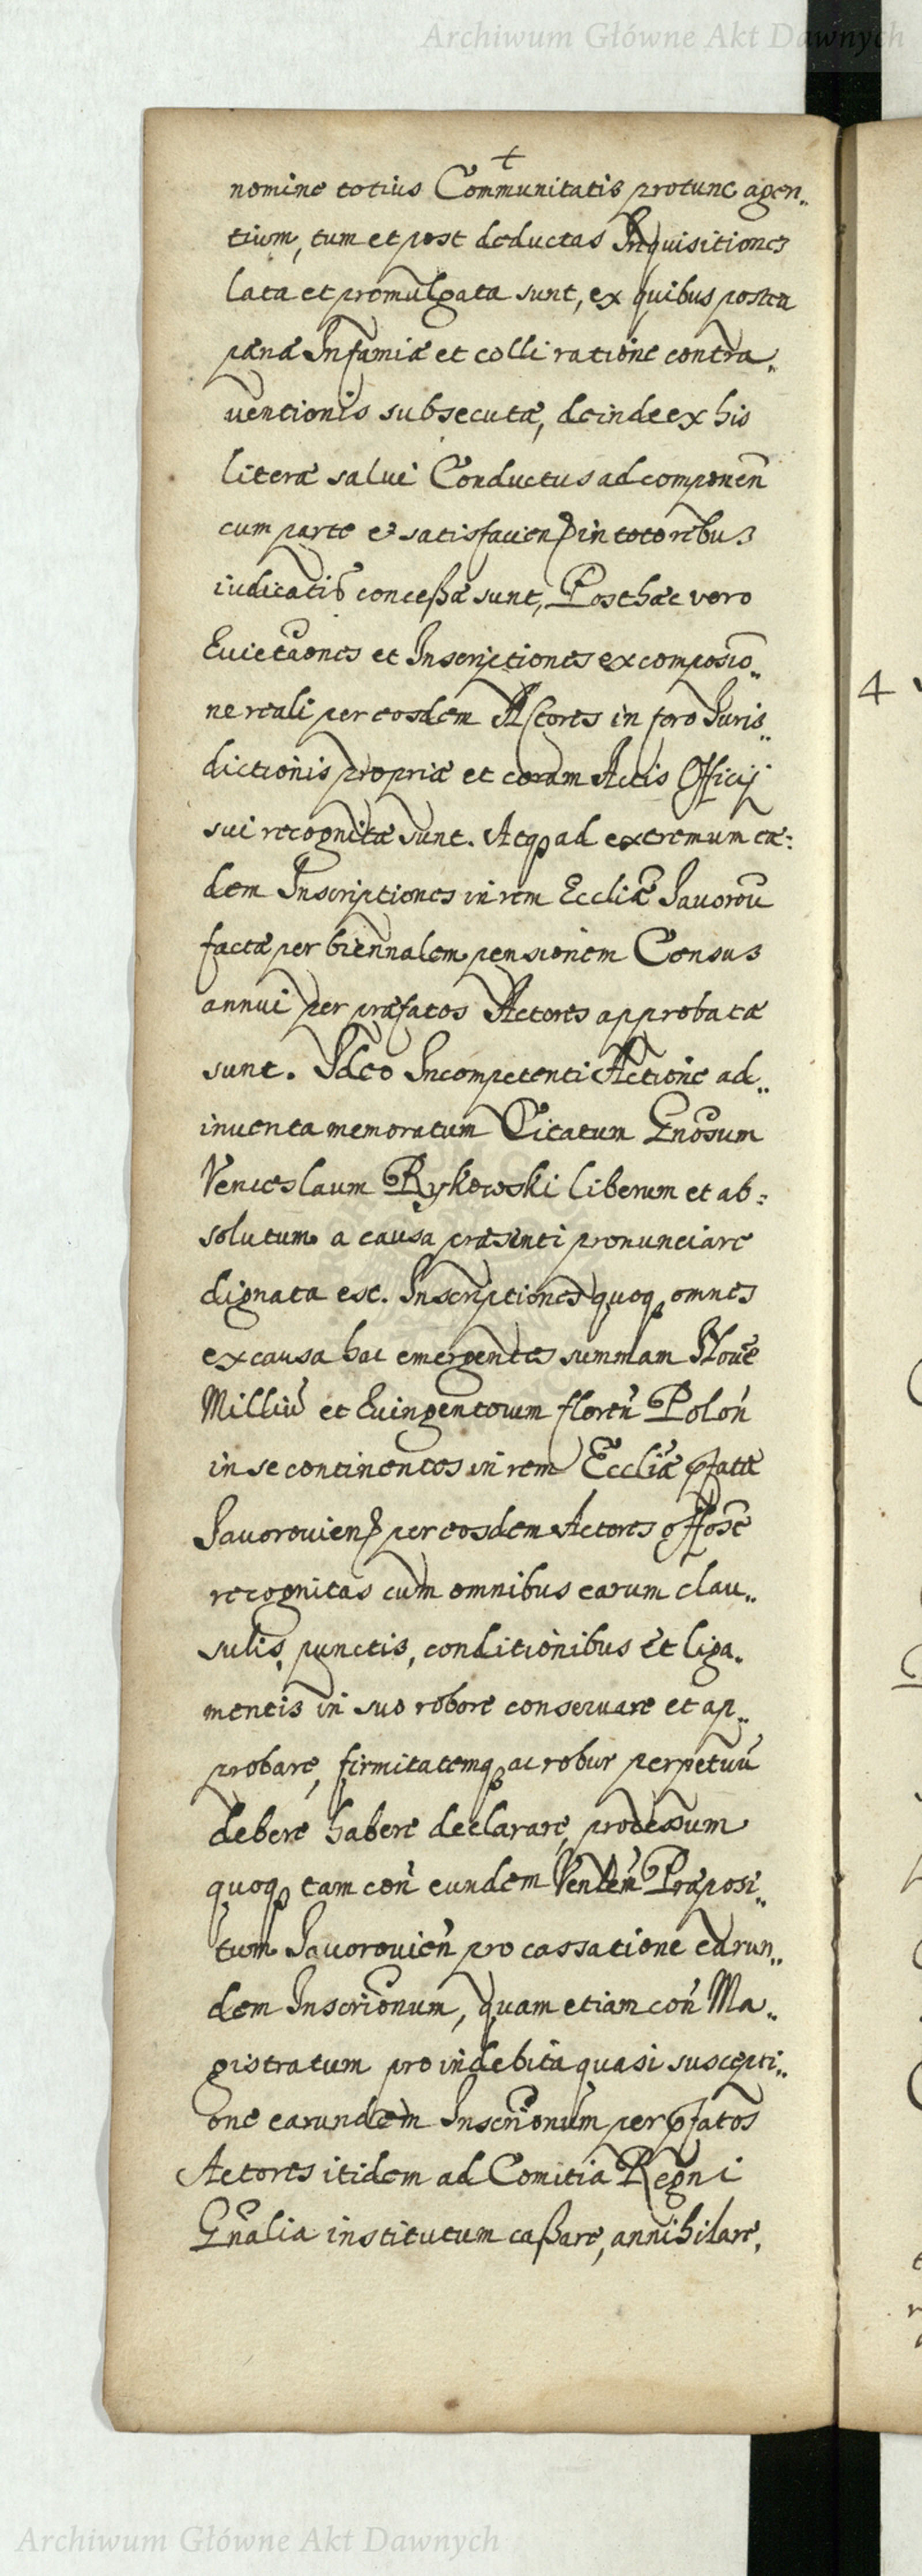 Archiwum Główne Akt Dawnych
+
nomine totius Communitatis protunc agen„
tium, tum et post deductas Inquisitiones
lata et promulgata sunt, ex quibus postea
pænæ Infamiæ et colli ratione contra„
uentionis subsecutæ, deinde ex his
literæ salui Conductus ad componen̄
cum parte et satisfacien in toto rebus
iudicatis conceßæ sunt, Posthæc vero
Euictaones et Inscriptiones ex composio„
ne reali per eosdem Actores in foro Juris„
dictionis propriæ et coram Actis Officij
sui recognitæ sunt. Atq ad extremum eæ:
dem Inscriptiones in rem Eccliæ Jauorou
factæ per biennalem pensionem Census
annui per præfatos Actores approbatæ
sunt. Ideo Incompetenti Actione ad„
inuenta memoratum Citatum Gnosum
Venceslaum Rykowski liberum et ab:
solutum a causa præsenti pronunciare
dignata est. Inscriptiones quoq omnes
ex causa hac emergentes summam Noue
Milliū et Quingentorum floren̄ Polon̄
in se continentes in rem Eccliæ pfatæ
Jauorouien per eosdem Actores offose
recognitas cum omnibus earum clau„
sulis, punctis, conditionibus et liga„
mentis in suo robore conseruare et ap„
probare, firmitatemq ac robur perpetuū
debere habere declarare, processum
quoq tam con̄ eundem Præposi„
tum Jauorouien̄ pro cassatione earun„
dem Inscrionum, quam etiam con̄ Ma„
gistratum pro indebita quasi suscepti„
one earundem Inscrionum per pfatos
Actores itidem ad Comitia Regni
Gnalia institutum caßare, annihilare,
4
Archiwum Główne Akt Dawnych